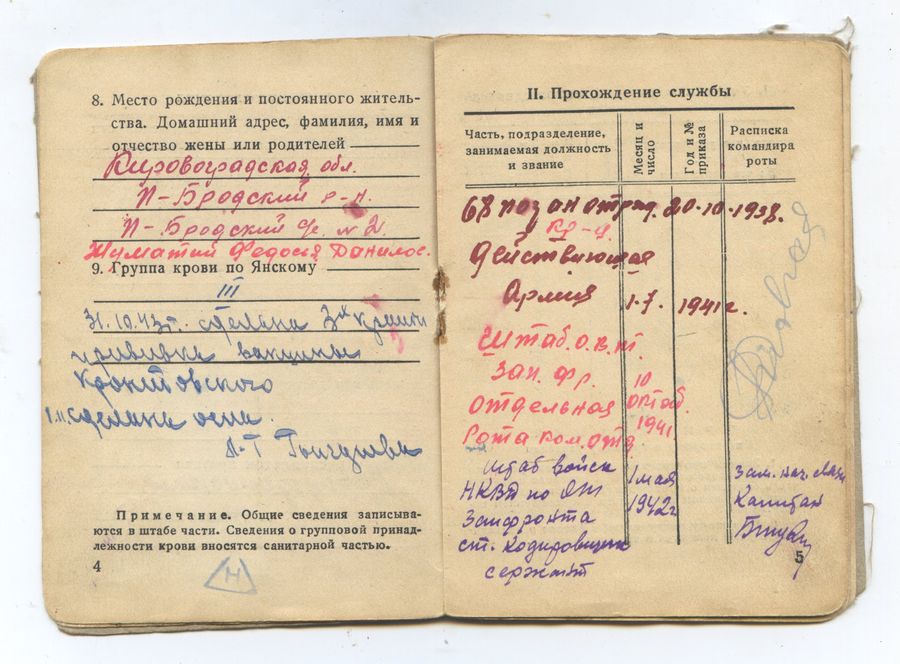 8. Место рождения и постоянного житель-
ства. Домашний адрес, фамилия, имя и
отчество жены или родителей
Кировоградская обл.
П-Бродский р-н.
П-Бродский № 2
Шуматий Федосия Данилов.
9. Группа крови по Янскому
III
31.10.43г. сделана 3я
прививка вакцины
сделана оспа
Примечание. Общие сведения записыва-
ются в штабе части. Сведения о групповой принад-
лежности крови вносятся санитарной частью.
4
Н
II. Прохождение службы
Часть, подразделение,
занимаемая должность
и звание
Месяц и
число
Год и №
приказа
Расписка
командира
роты
68 отряд. 20-10-1938.
кр-ц.
Действующая
Армия 1.7. 1941г.
Штаб. о.в.т.
Зап. фр. 10
отдельная октяб.
1941
Рота ком. отд.
штаб войск 1 мая зам. нач. связи
НКВД по от 1942г Капитан
Запфронта
ст. кодировщик
сержант
5